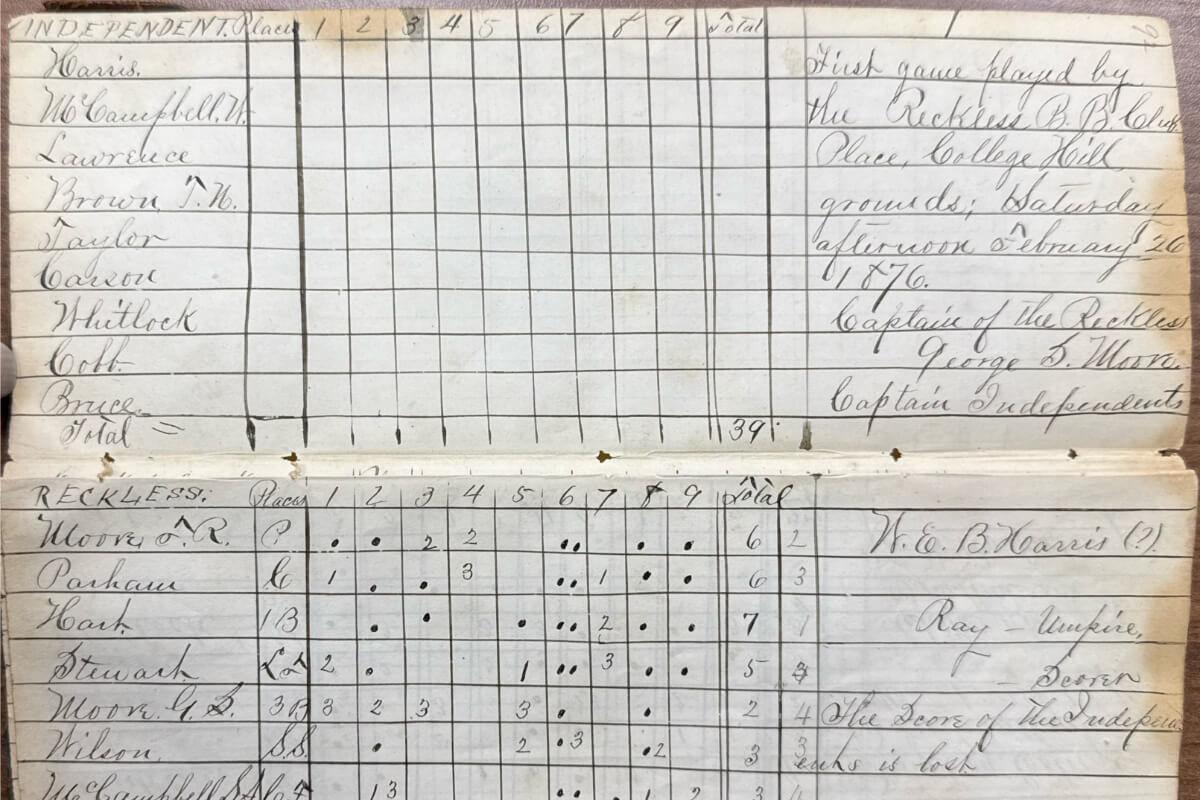 INDEPENDENT. Places 1 2 3 4 5 6 7 8 9 Total
Harris.
McCampbell, W.
Lawrence
Brown, T. H.
Taylor
Carson
Whitlock
Cobb
Bruce
Total = 39
First game played by
the Reckless B. B. Club.
Place, College Hill
grounds; Saturday
afternoon February 26
1876.
Captain of the Reckless
George S. Moore.
Captain Independents
RECKLESS: Places 1 2 3 4 5 6 7 8 9 Total
Moore, F. R. P . . 2 2 .. . . 6 2
Parham C 1 . . 3 .. 1 . . 6 3
Hart 1B . . . .. 2 . . 7 1
Stewart L.F 2 . 1 .. 3 . . 5 4
Moore G. S. 3B 3 2 3 3 . . 2 4
Wilson, S.S. . 2 .3 .2 3 3
McCampbell 1 3 .. . 1 2 3
W. E. B. Harris (?)
Ray – Umpire,
– Scorer
The Score of the Independ
ents is lost